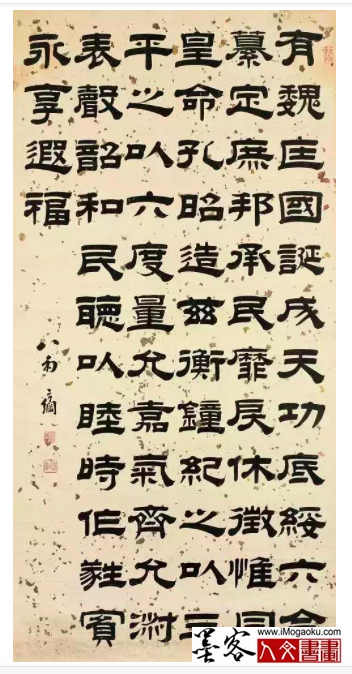 有魏匡國誕成天功底綏六合
纂定庶邦承民靡戾休徵惟同
皇命孔昭造茲衡鐘紀之以三
平之以六度量允嘉氣齊允淑
表聲韶和民聽以睦時作蕤賓
永享遐福
八
墨客
www.iMogaoku.com
人文書畫